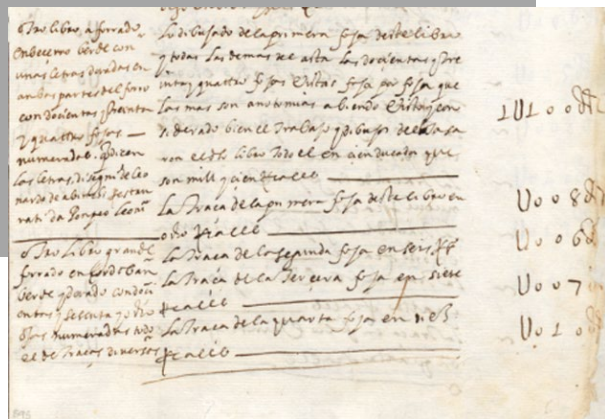 otro libro aforrado
en beçerro berde con
unas letras doradas en
anbas partes del forro
con docientas y treinta
y quattro fojas
numeradas q dicen
las letras, disegni di leo
nardo da
otro libro grande
forrado en cordoban
berde y dorado con doçi
entas y sesenta y ocho
ojas numeradas todo
el de traças diversas
lo dibujado de la primera foja deste libro
y todas las demas asta las docientas y tre
inta y quattro fojas vistas foja por foja que
las mas son anotomias abiendo visto y con
siderado bien el trabajo y dibujo de
ron el dho libro todo el en cien ducados que
son mill y cien Realles
1U100
La traça de la primera foja deste libro en
ocho Realles
U008
La traça de la segunda foja en seis
U006
La traça de la tercera foja en siete
Realles
U007
La traça de la quarta foja en
Realles
U010